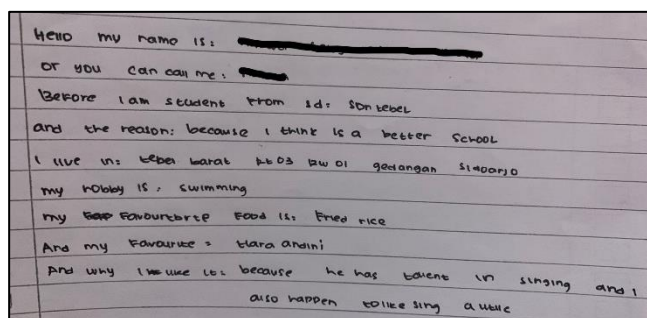 Hello my name is:
or you can call me:
Before I am student from sd: sdn tebel
and the reason: because I think is a better school
I live in: tebel barat Rt 03 RW 01 gedangan Sidoarjo
my hobby is, swimming
my Favourite Food is: Fried rice
And my Favourite = tiara andini
And why I like it: because he has talent in singing and I
also happen to like sing a little